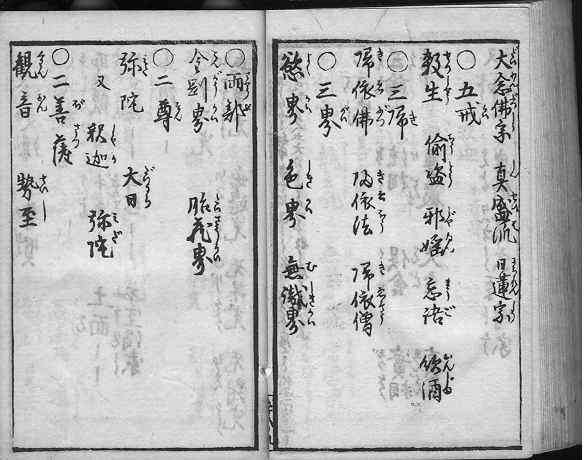 大念佛宗 真盛流 日蓮宗
〇五戒
殺生 偸盗 邪婬 忘語 飲酒
〇三帰
帰依佛 帰依法 帰依僧
〇三界
慾界 色界 無識界
〇両部
金剛界 胎蔵界
〇二尊
弥陀 大日
又 釈迦 弥陀
〇二菩薩
観音 勢至